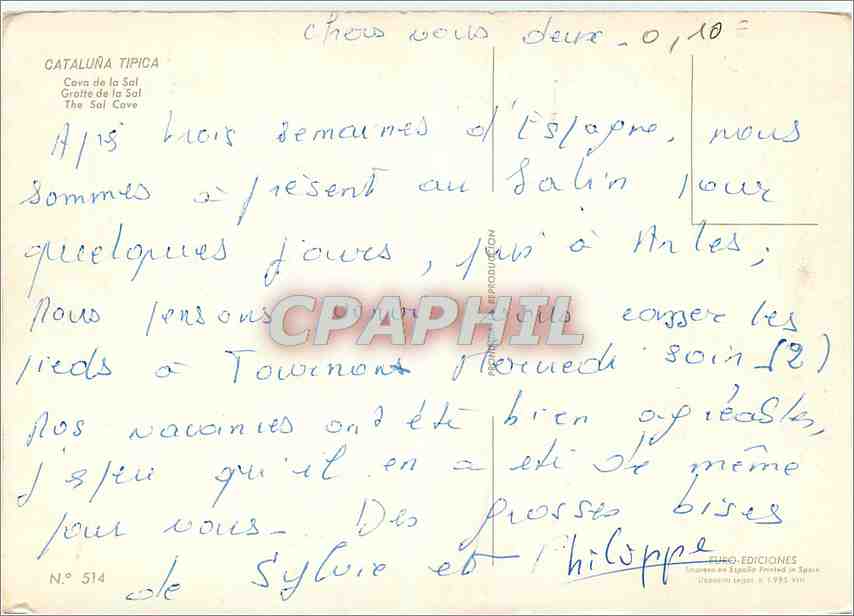 chers vous deux - 0,10 =
CATALUÑA TIPICA
Cova de la Sal
Grotte de la Sal
The Sal Cave
Après trois semaines d'Espagne, nous
sommes à présent au Salin pour
quelques jours, puis à Arles ;
Nous pensons venir vous casser les
pieds à Tournon Mercredi soin (2)
Nos vacances ont été bien agréables,
j'espère qu'il en a été de même
pour vous - Des grosses bises
de Sylvie et Philippe
CPAPHIL
REPRODUCCION
N.º 514
EURO-EDICIONES
Impreso en España Printed in Spain
Depósito Legal, B. 1.995 VIII